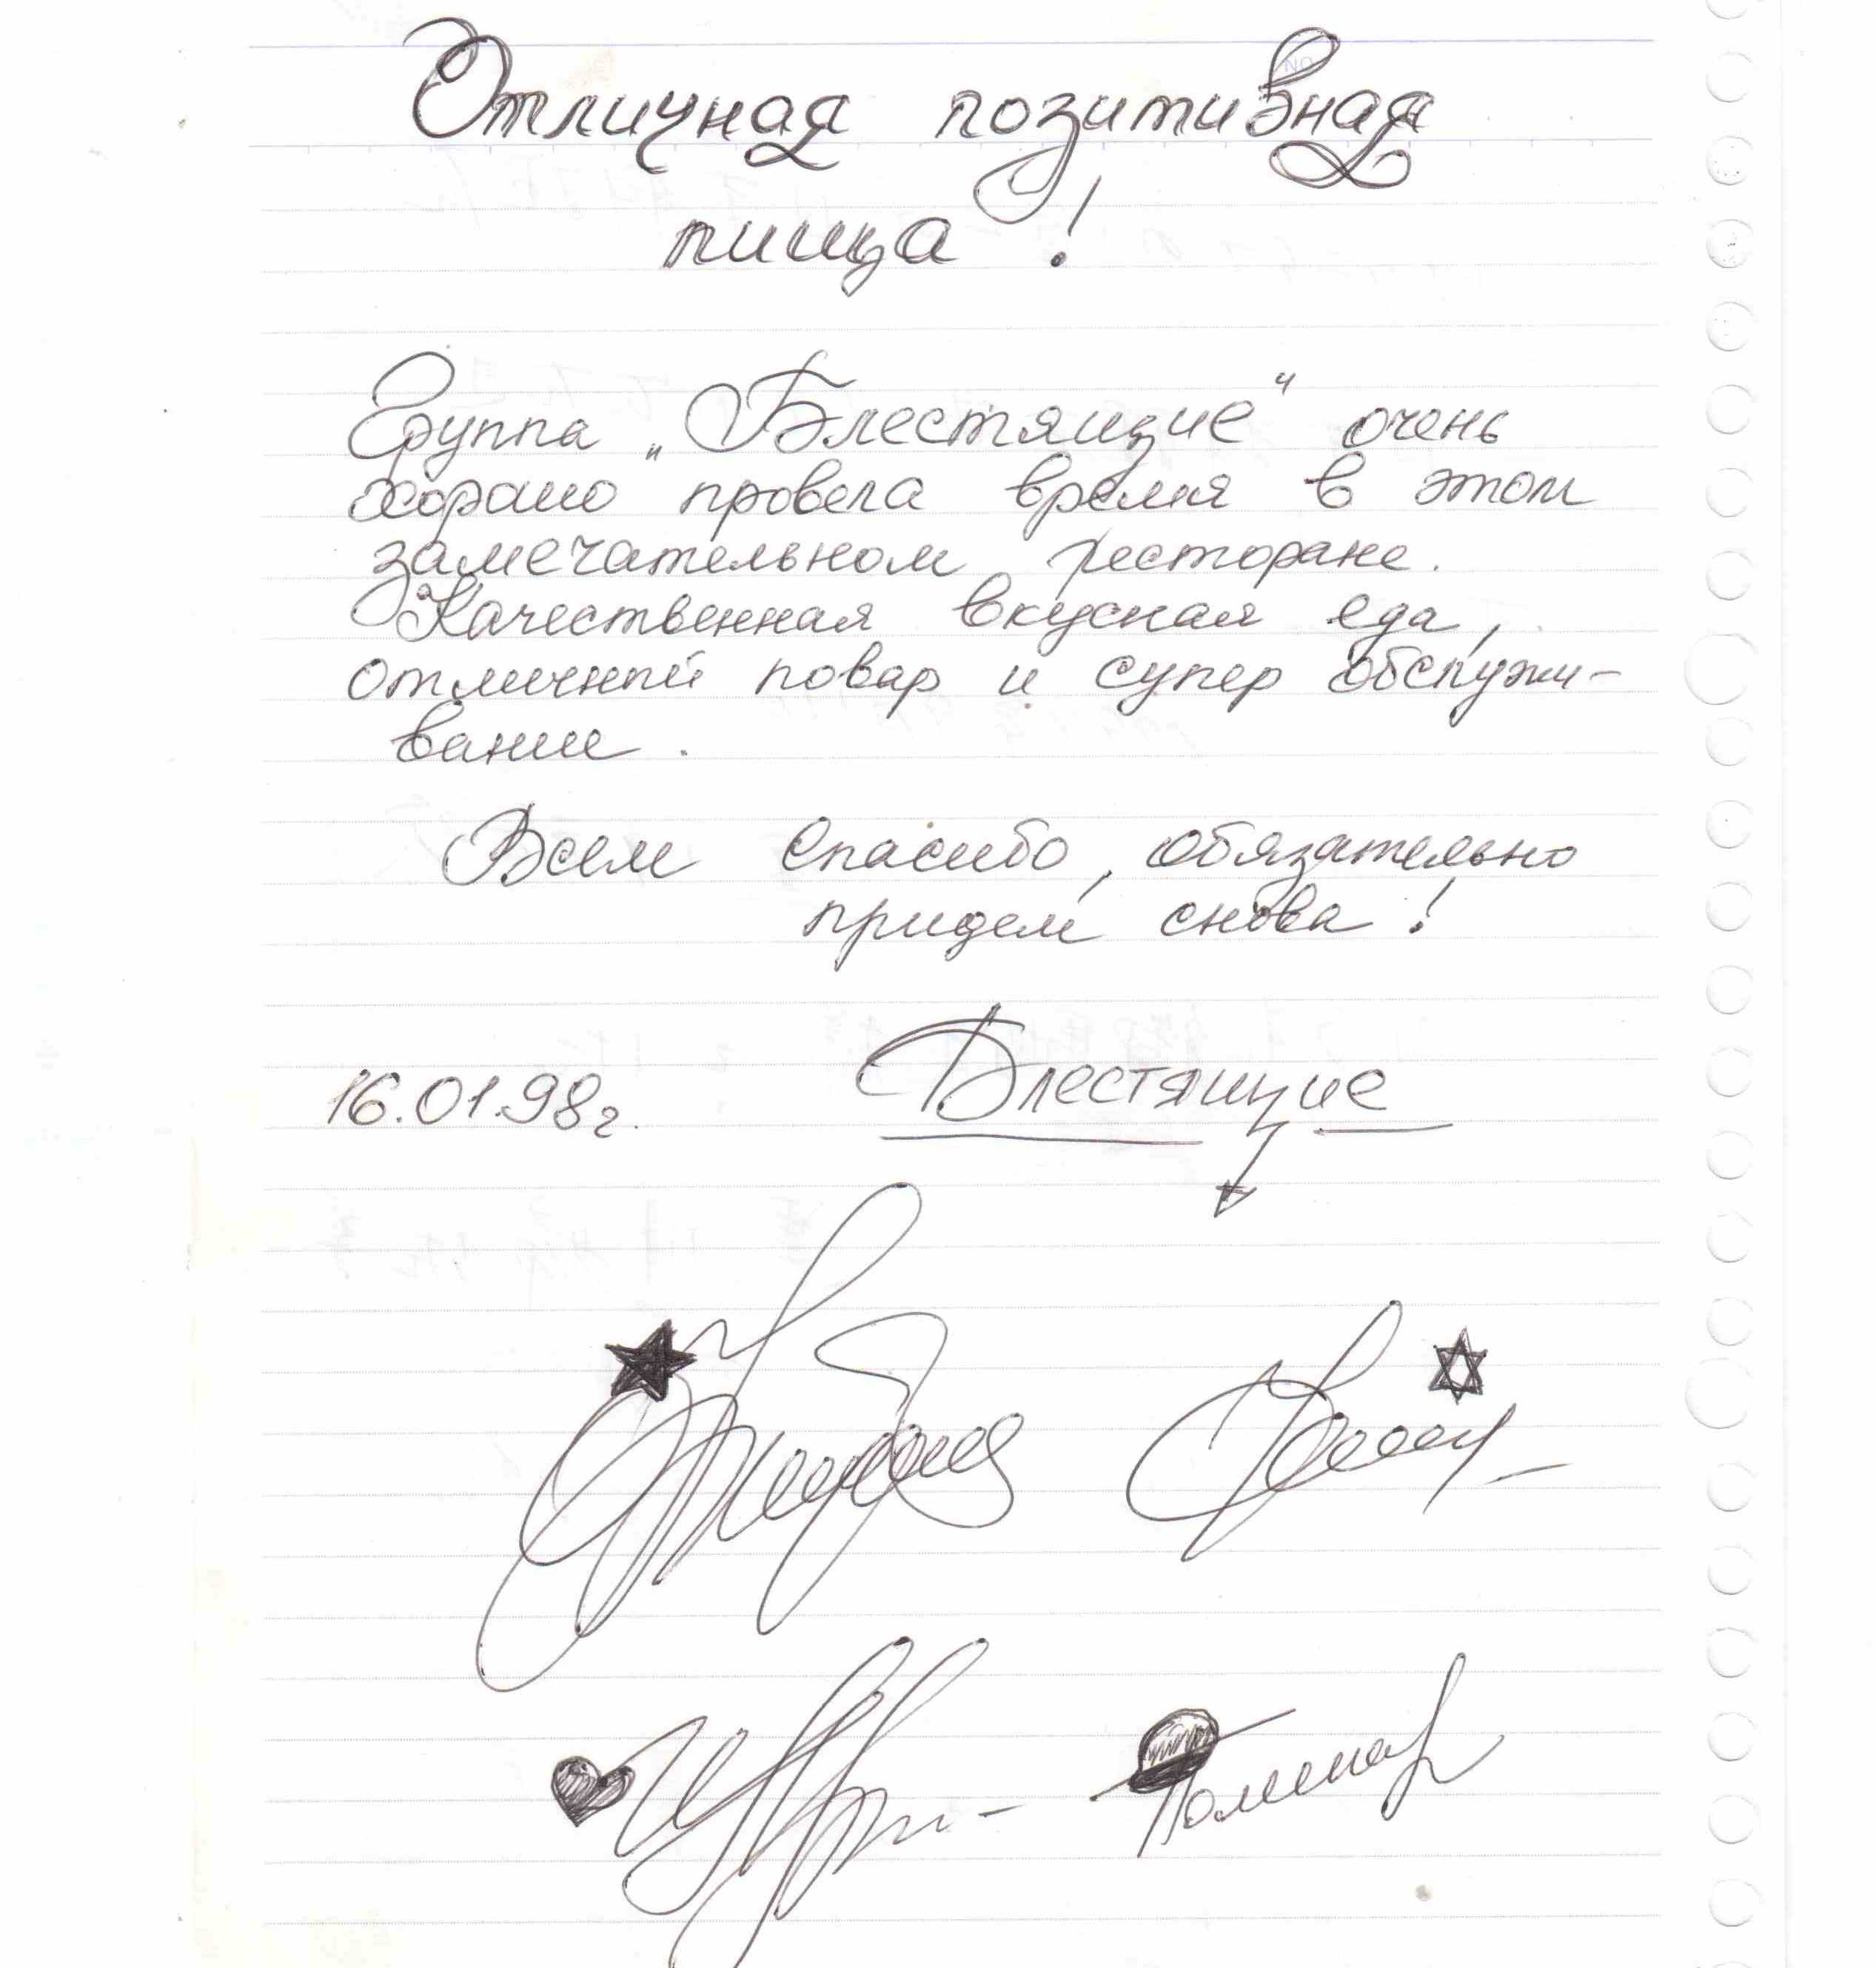 Отличная позитивная
пища!
Группа „Блестящие“ очень
хорошо провела время в этом
замечательном ресторане.
Качественная вкусная еда,
отличный повар и супер обслужи-
вание.
Всем спасибо, обязательно
придем снова!
16.01.98г.
Блестящие